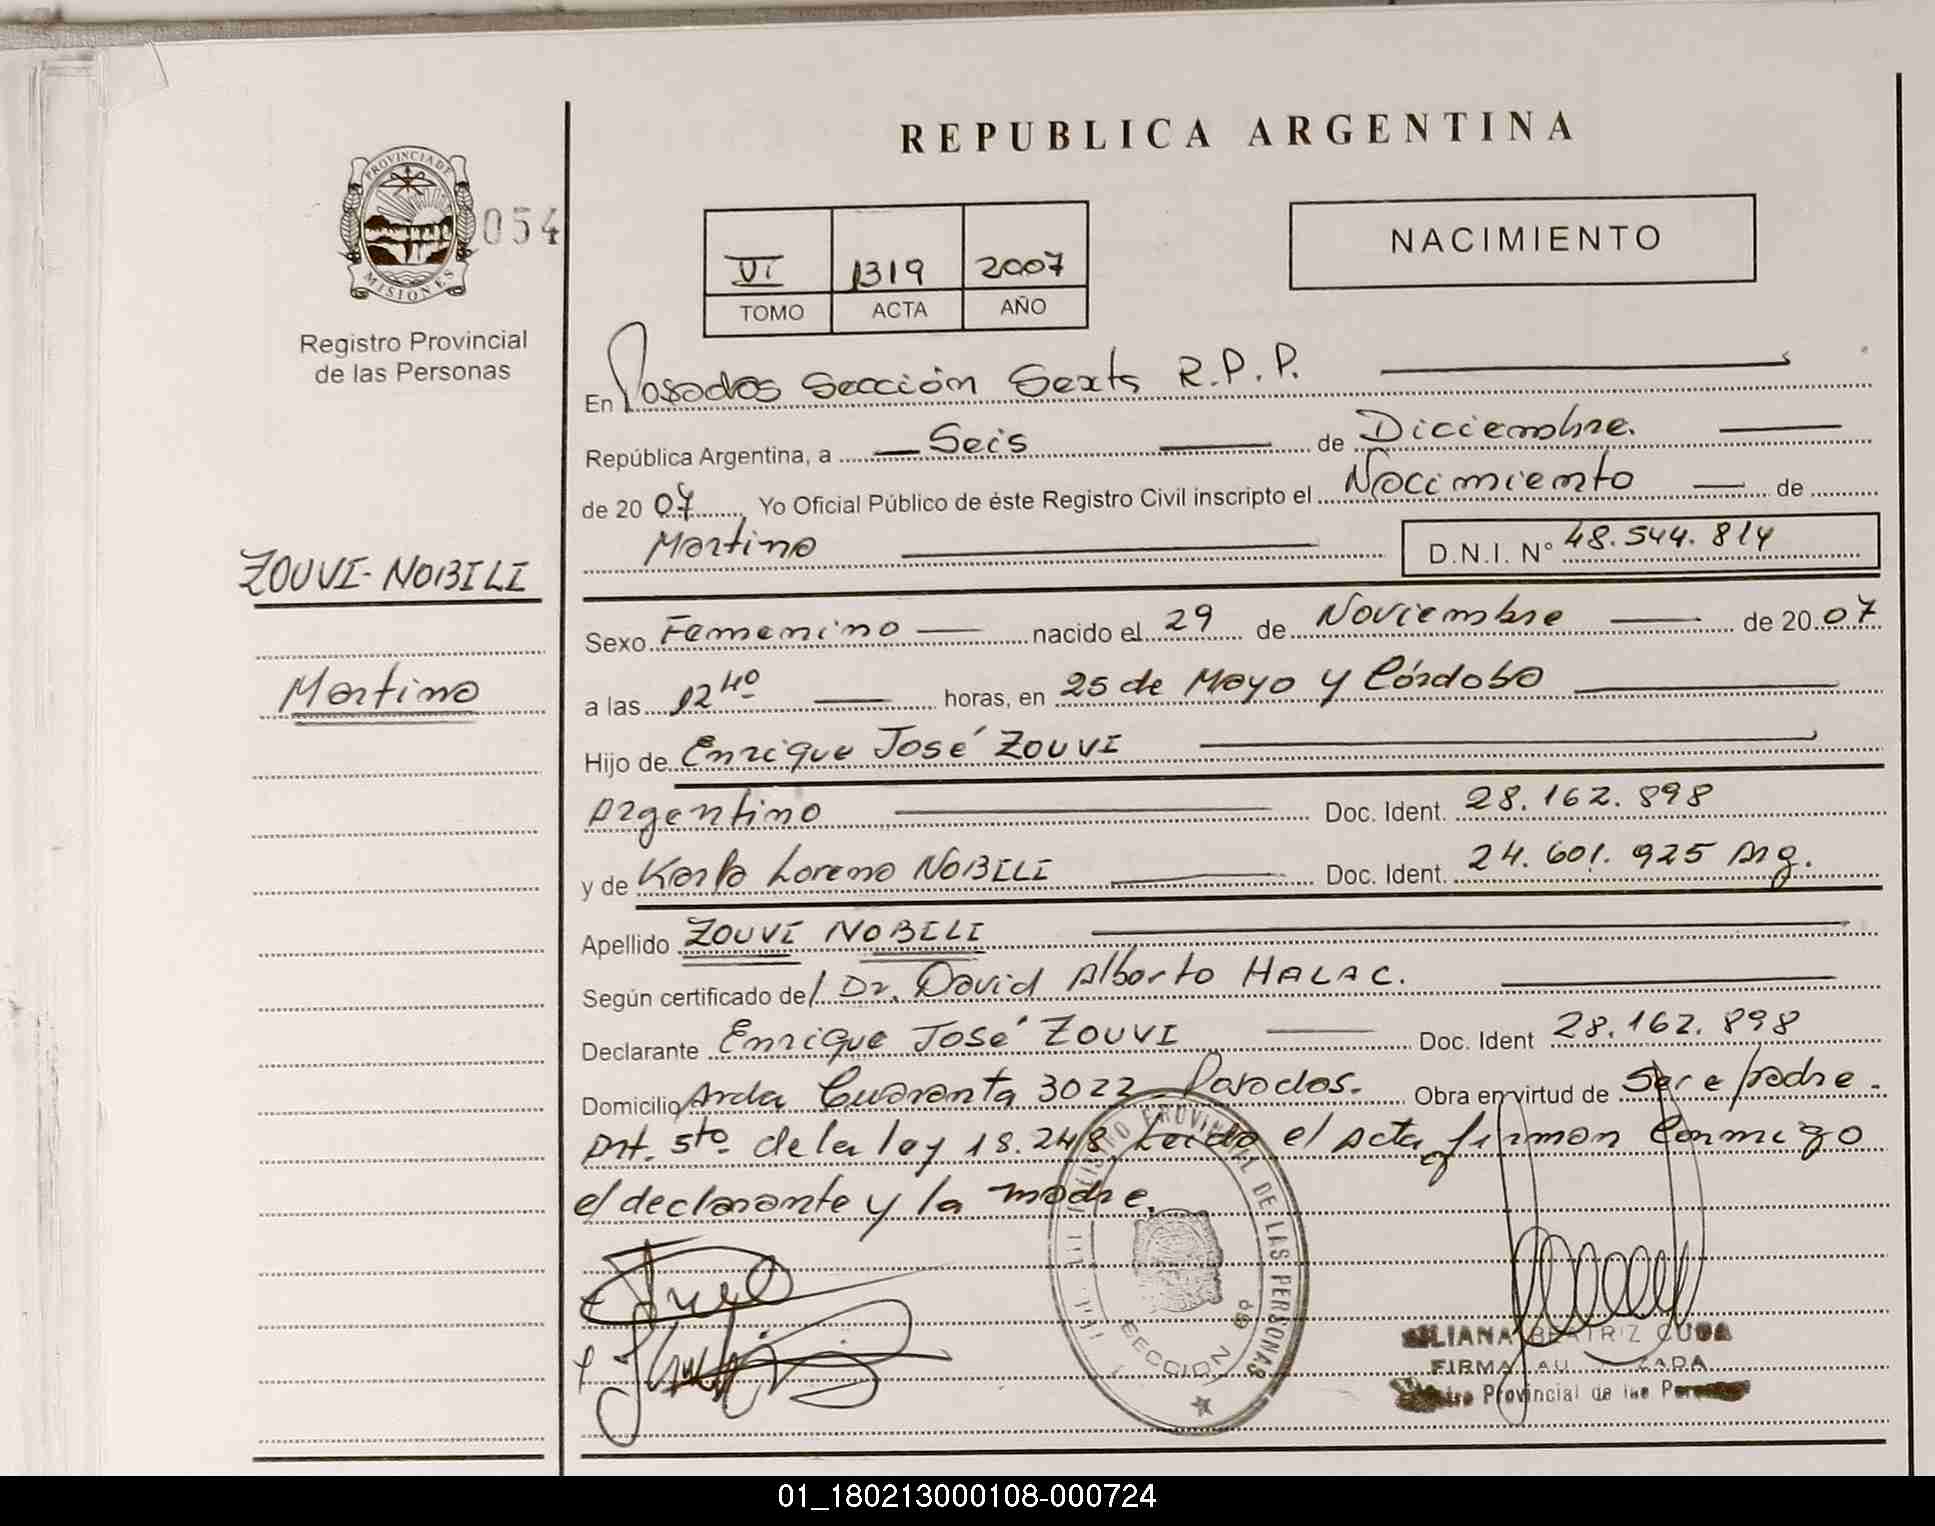 REPUBLICA ARGENTINA
PROVINCIA DE
MISIONES
054
Registro Provincial
de las Personas
NACIMIENTO
VI 1319 2007
TOMO ACTA AÑO
En Posadas Sección Sexta R.P.P.
República Argentina, a Seis de Diciembre.
de 20 07 Yo Oficial Público de éste Registro Civil inscripto el Nacimiento de
Martina D.N.I. Nº 48.544.814
ZOUVI-NOBILI
Martina
Sexo Femenino nacido el 29 de Noviembre de 20 07
a las 12 40 horas, en 25 de Mayo y Córdoba
Hijo de Enrique José ZOUVI
Argentino Doc. Ident. 28.162.898
y de Karla Lorena NOBILI Doc. Ident. 24.601.925 Arg.
Apellido ZOUVI NOBILI
Según certificado del Dr. David Alberto HALAC.
Declarante Enrique José ZOUVI Doc. Ident 28.162.898
Domicilio Avda Cuaranta 3022 Posadas. Obra en virtud de Ser e padre.
Art. 5to. de la ley 18.248 Leida el acta firman conmigo
el declarante y la madre.
PROVINCIAL DE LAS PERSONAS
SECCION 6º
LILIANA BEATRIZ CUBA
FIRMA AUTORIZADA
Provincial de las Personas
01_180213000108-000724